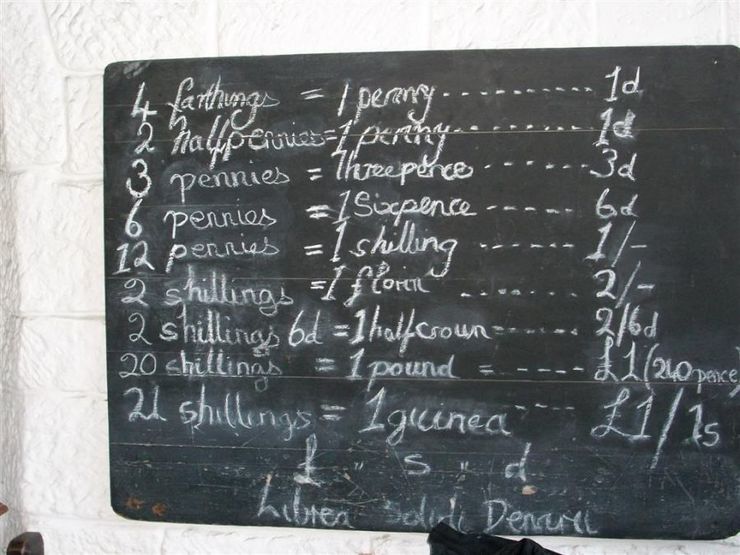 4 farthings = 1 penny ----------- 1d
2 halfpennies = 1 penny ----------- 1d
3 pennies = Threepence ------ 3d
6 pennies = 1 Sixpence ------ 6d
12 pennies = 1 shilling ------- 1/-
2 shillings = 1 florin ------ 2/-
2 shillings 6d = 1 halfcrown ------ 2/6d
20 shillings = 1 pound = ----- £1 (240 pence)
21 shillings = 1 guinea ---- £1/1s
£ " s " d
Librea Solidi Denarii